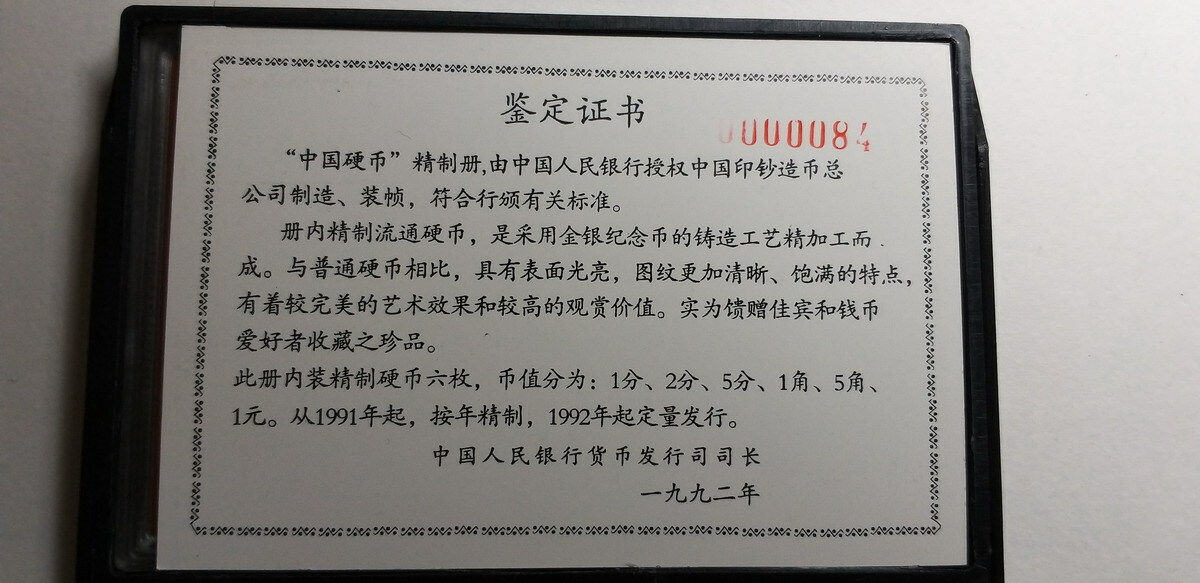 鉴定证书
0000084
“中国硬币”精制册,由中国人民银行授权中国印钞造币总
公司制造、装帧，符合行颁有关标准。
册内精制流通硬币，是采用金银纪念币的铸造工艺精加工而
成。与普通硬币相比，具有表面光亮，图纹更加清晰、饱满的特点，
有着较完美的艺术效果和较高的观赏价值。实为馈赠佳宾和钱币
爱好者收藏之珍品。
此册内装精制硬币六枚，币值分为：1分、2分、5分、1角、5角、
1元。从1991年起，按年精制，1992年起定量发行。
中国人民银行货币发行司司长
一九九二年